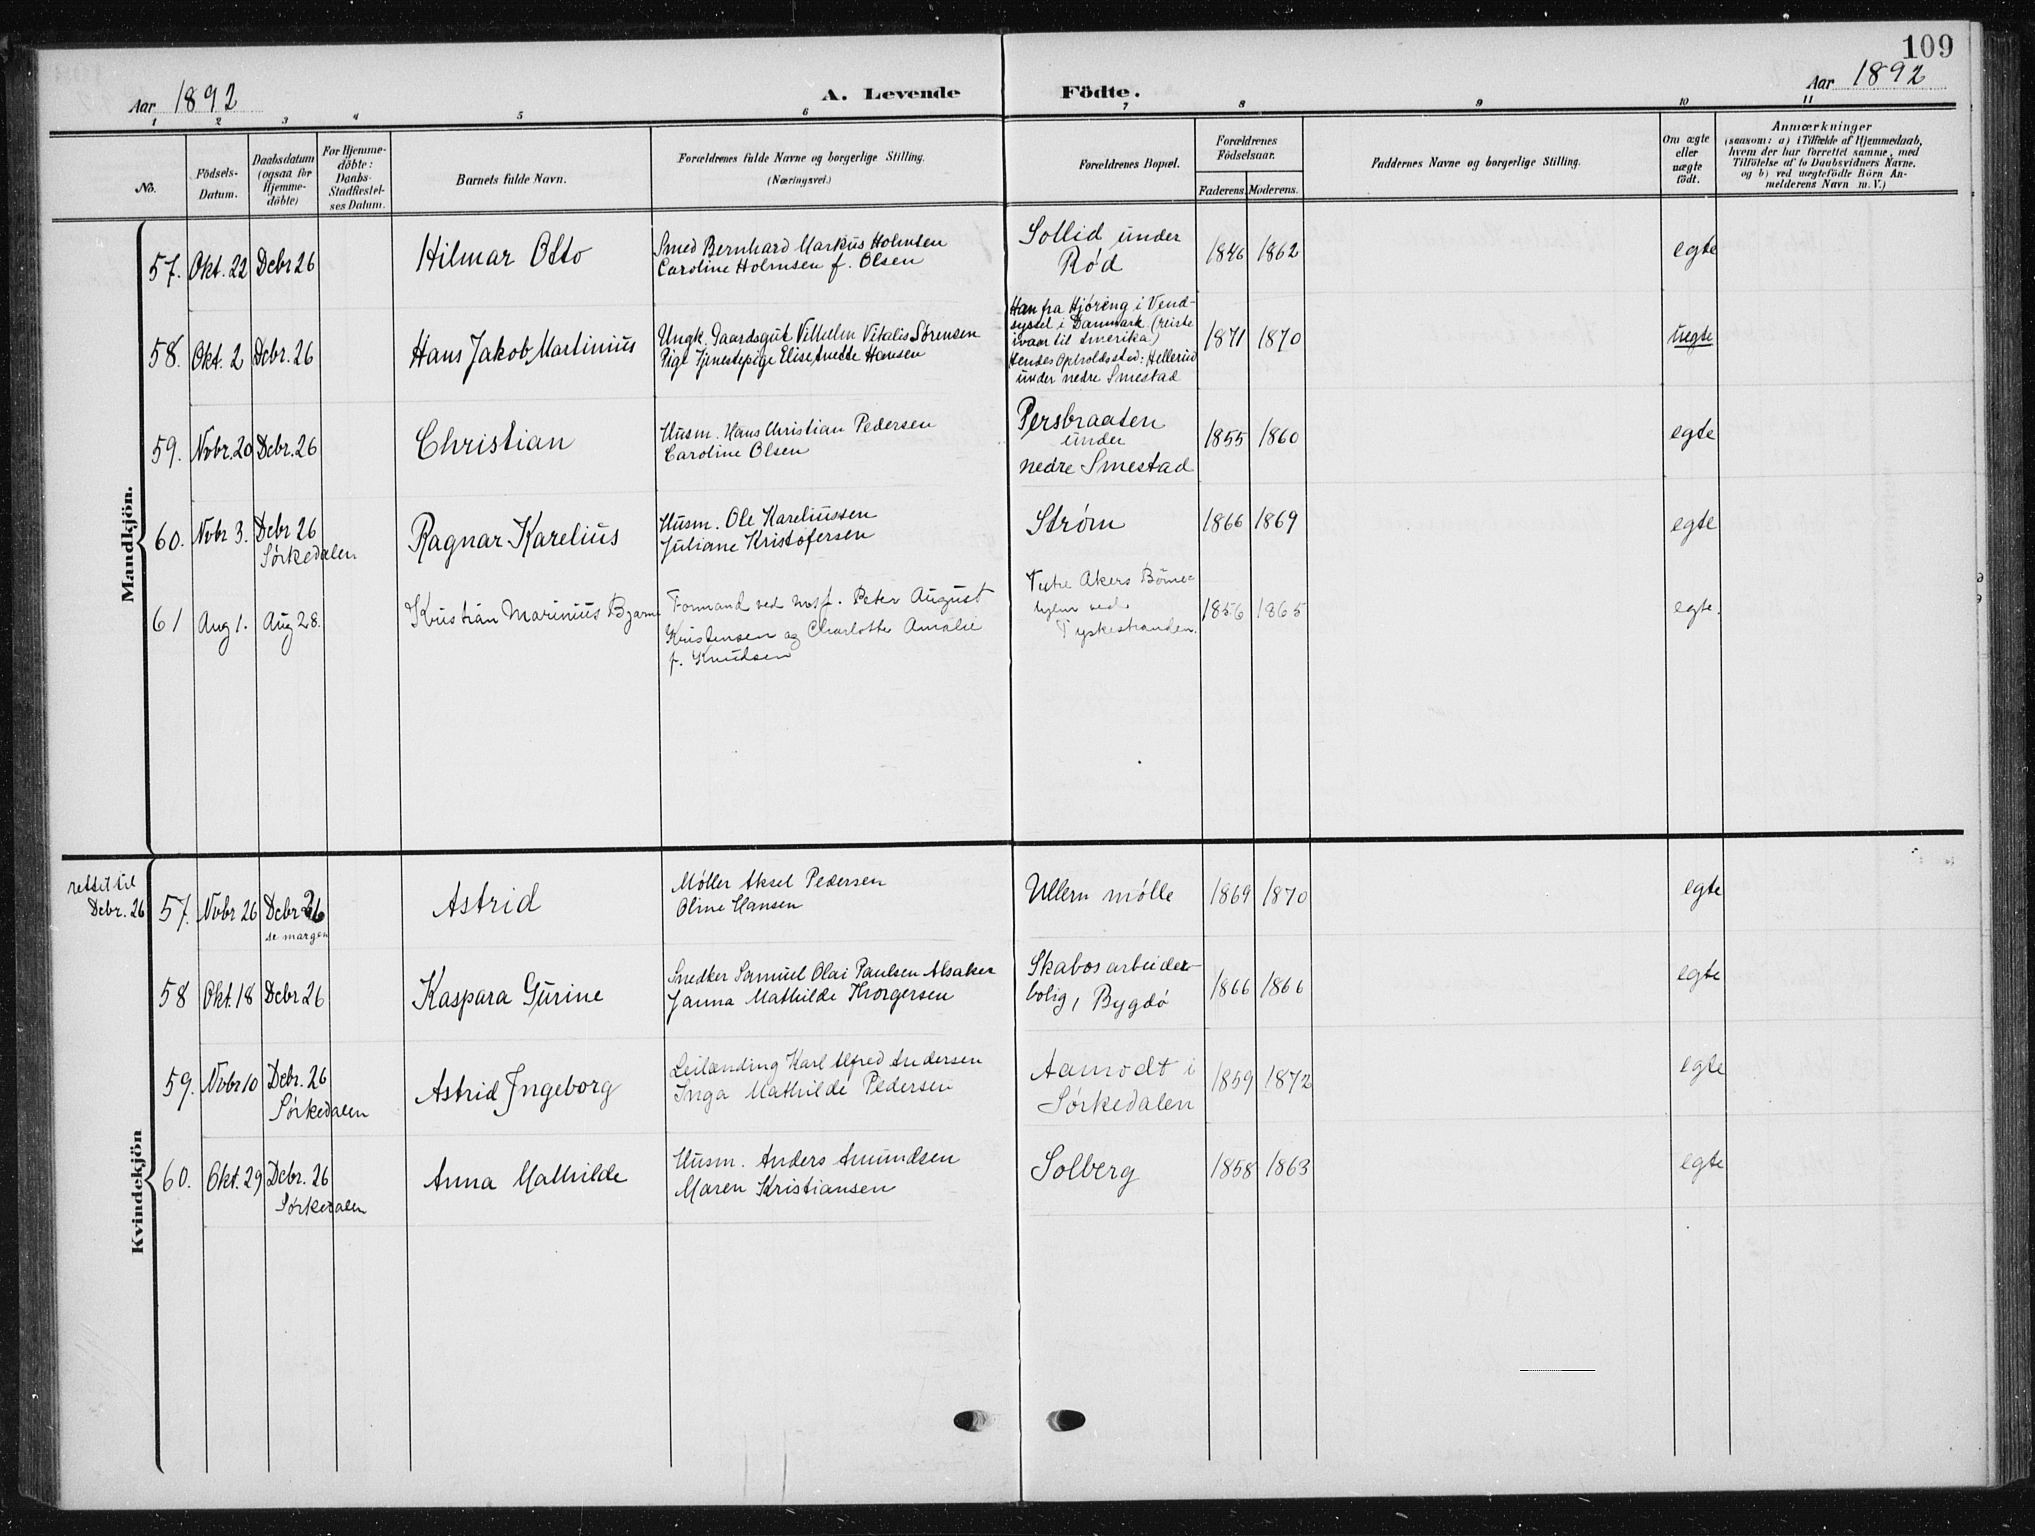 109
Aar 1892
A. Levende Födte.
Aar 1892
1 2 3 4 5 6 7 8 9 10 11
No.
Födsels-
Datum.
Daabsdatum
(ogsaa for
Hjemme-
döbte)
For Hjemme-
döbte:
Daabs-
Stadfæstel-
ses Datum.
Barnets fulde Navn.
Forældrenes fulde Navne og borgerlige Stilling.
(Næringsvei.)
Forældrenes Bopæl.
Forældrenes
Födselsaar.
Faderens. Moderens.
Faddernes Navne og borgerlige Stilling.
Om ægte
eller
uægte
födt.
Anmærkninger
(saasom: a) i Tilfælde af Hjemmedaab,
hvem der har forrettet samme, med
Tilföielse af to Daabsvidners Navne,
og b) ved uægtefödte Börn An-
melderens Navn m. V.)
Mandkjön.
57. Okt. 22 Debr 26 Hilmar Otto
Smed Bernhard Markus Holmsen
Caroline Holmsen f. Olsen
Sollid under
Rød
1846 1862 egte
58. Okt. 2 Debr. 26 Hans Jakob Martinius
Ungk. Gaardsgut Vilhelm Vitalis Sørensen
Pige Tjenestepige Elise Anette Hansen
Han fra Hjøring i Vend-
syssel i Danmark (reiste
ivaar til Amerika)
Hendes Opholdssted: Hellerud
under nedre Smestad
1871 1870 uegte
59. Novbr. 20 Debr. 26 Christian
Husm. Hans Christian Pedersen
Caroline Olsen
Persbraaten
under
nedre Smestad
1855 1860 egte
60. Novbr 3. Debr 26
Sørkedalen
Ragnar Karelius
Husm. Ole Kareliussen
Juliane Kristofersen
Strøm
1866 1869 egte
61 Aug 1. Aug 28. Kristian Marinius Bjarne
Formand ved Peter August
Kristensen og Charlotte Amalie
f. Knudsen
Akers
ved
Tyskestranden.
1856 1865 egte.
Kvindekjön
rettet til
Debr. 26
57. Novbr 26 Debr 26
se margen
Astrid
Møller Aksel Pedersen
Oline Hansen
Ullern mølle
1869 1870 egte
58 Okt. 18 Debr 26 Kaspara Gurine
Snedker Samuel Olai Paulsen Alsaker
Janna Mathilde Thorgersen
Skabos arbeider-
bolig, Bygdø
1866 1866 egte
59. Novbr 10 Debr. 26
Sørkedalen
Astrid Ingeborg
Leilænding Karl Alfred Andersen
Inga Mathilde Pedersen
Aamodt i
Sørkedalen
1859 1872 egte
60. Okt. 29 Debr. 26
Sørkedalen
Anna Mathilde
Husm. Anders Amundsen
Maren Kristiansen
Solberg
1858 1863 egte